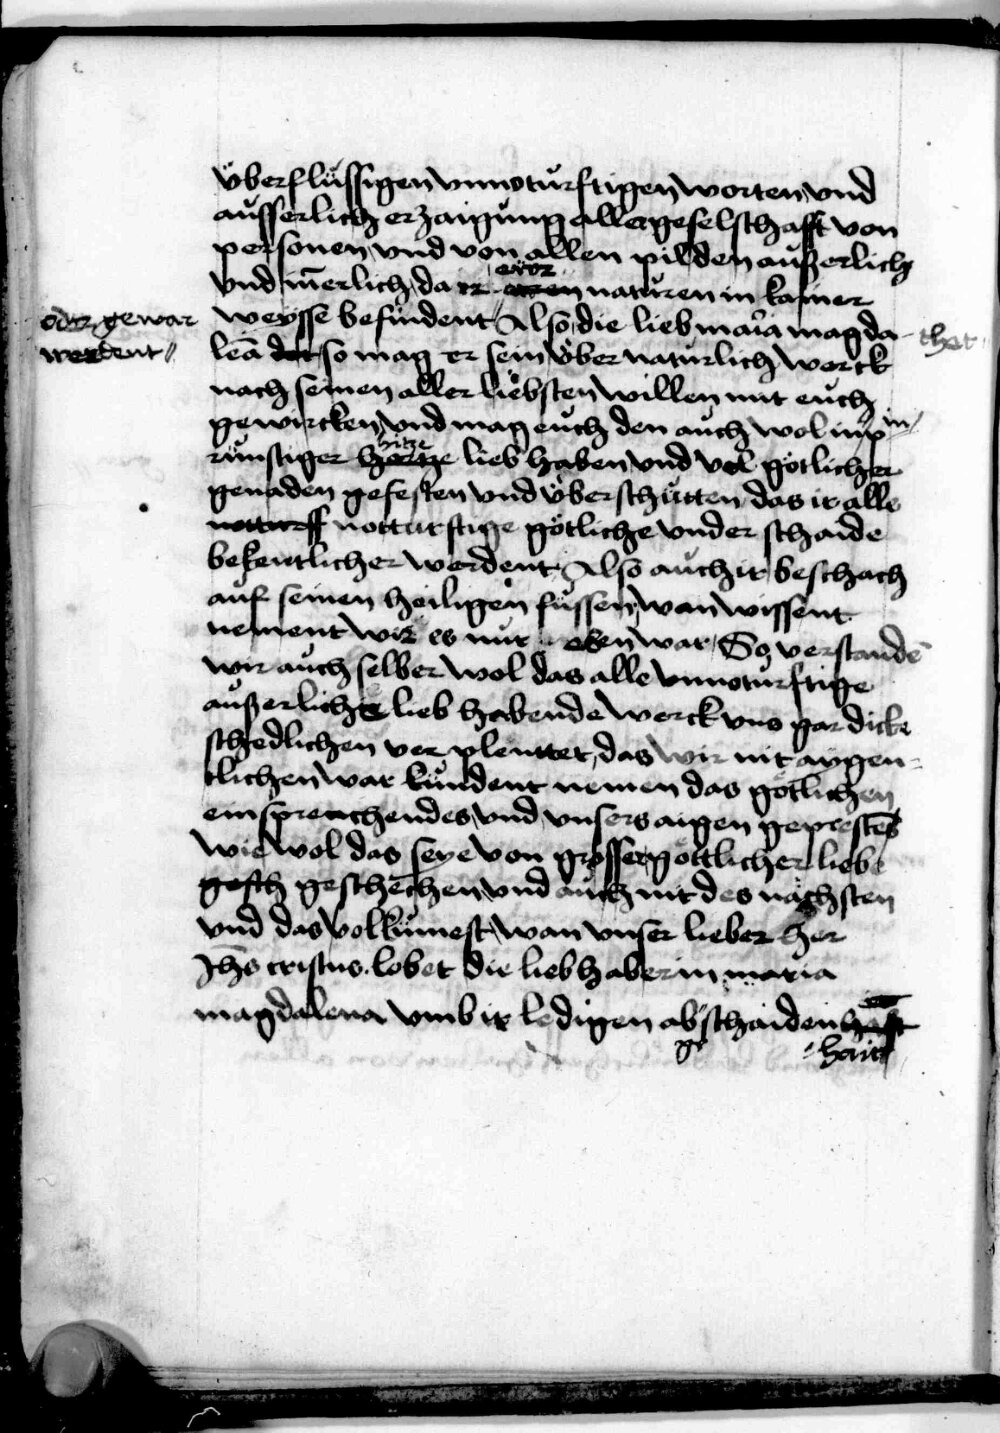 v̈berflüssigen vnnotürftigen worten vnd
aüsserlich erzaigüng aller geselschafft von
personen vnd von allen pilden außerlich
vnd in̄erlich da ir ewer natüren in kainer
oder gewar
werdent //
weysse befindent Also die lieb maria magda-
thet
lēa so mag er sein v̈ber natürlich werck
nach seinen aller liebsten willen mit eüch
gewircken vnd mag eüch den aüch wol in
in
rünstiger hitze lieb haben vnd vol götlicher
genaden gefesten vnd v̈berschütten das ir alle
notturff notturftige götliche vnderschaide
bekentlicher werdent Also aüch ir beschach
auf seinen heiligen füssen wan wissent
nement wir es nür eben war So verstandē
wir aüch selber wol das alle vnnotürftige
außerliche lieb habende werck vns gar dicke
schedlichen verplentet das wir nit aygen-
tlichen war kündent nemen das götlichen
einsprechendes vnd vnsers aigen geprestēs
wie wol das seye von grosser göttlicher liebe
gesch geschechen vnd aüch mit des nächsten
vnd das volkümest wan vnser lieber her
Jh̄s cristus lobet die liebhaberin maria
magdalena vmb ir ledigen abgschaiden
hait